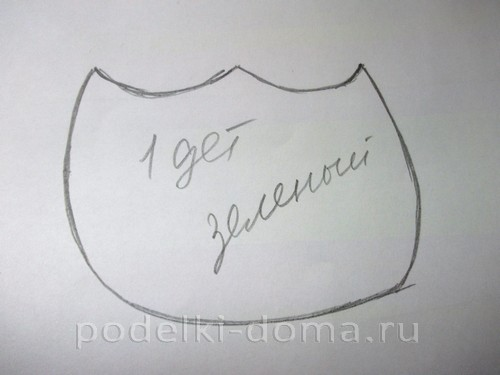 1 дет
зеленый
podelki-doma.ru